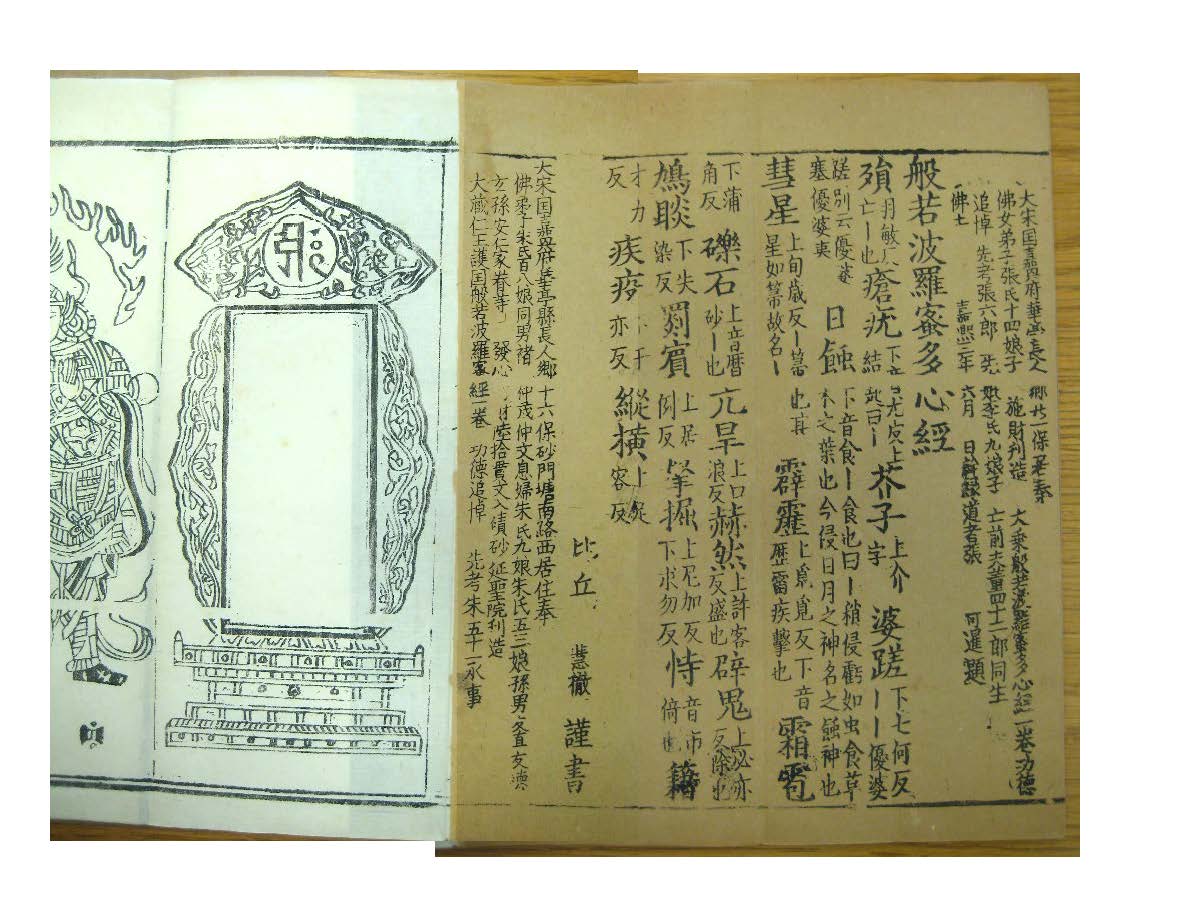 大宋国嘉興府華亭長人鄉廿一保居奉 大乗般若波羅蜜多心經一卷功德
佛女弟子張氏十四娘子 施財刊造 亡前夫董四十二郎同生
追悼 先考張六郎 先妣李氏九娘子
佛土 嘉熙三年六月 日幹緣道者張 可暹 題
般若波羅蜜多心經
殞 亡ー也 瘡疣 結起曰ー 芥子 上介字 婆蹉 下七何反ーー優婆
蹉別云優婆塞優婆夷 日蝕 下音食ー食也曰ー稍侵虧如虫食草木之葉也今侵日月之神名之蝕神也
彗星 上旬歲反ー箒星如箒故名ー也 霹靂 上覓覓反下音歷雷疾擊也 霜雹
下蒲角反 礫石 上音曆砂ー也 亢旱 上口浪反 赫然 上許客反盛也 辟鬼 上必亦反除也
鳩睒 下失染反 罽賓 上居例反 拏掘 上尼加反下求勿反 恃 音市倚也 籍
才力反 疾疫 縱横 上從容反
比丘 慧徹 謹書
大宋国嘉興府華亭縣長人鄉十六保砂門塘南路西居住奉
佛弟子朱氏百八娘同男褚仲成仲文息婦朱氏九娘朱氏五三娘孫男
玄孫女仁家眷等 發心 陸拾貫文入磧砂延聖院刊造
大藏仁王護国般若波羅蜜經一卷 功德追悼 先考朱五十二承事